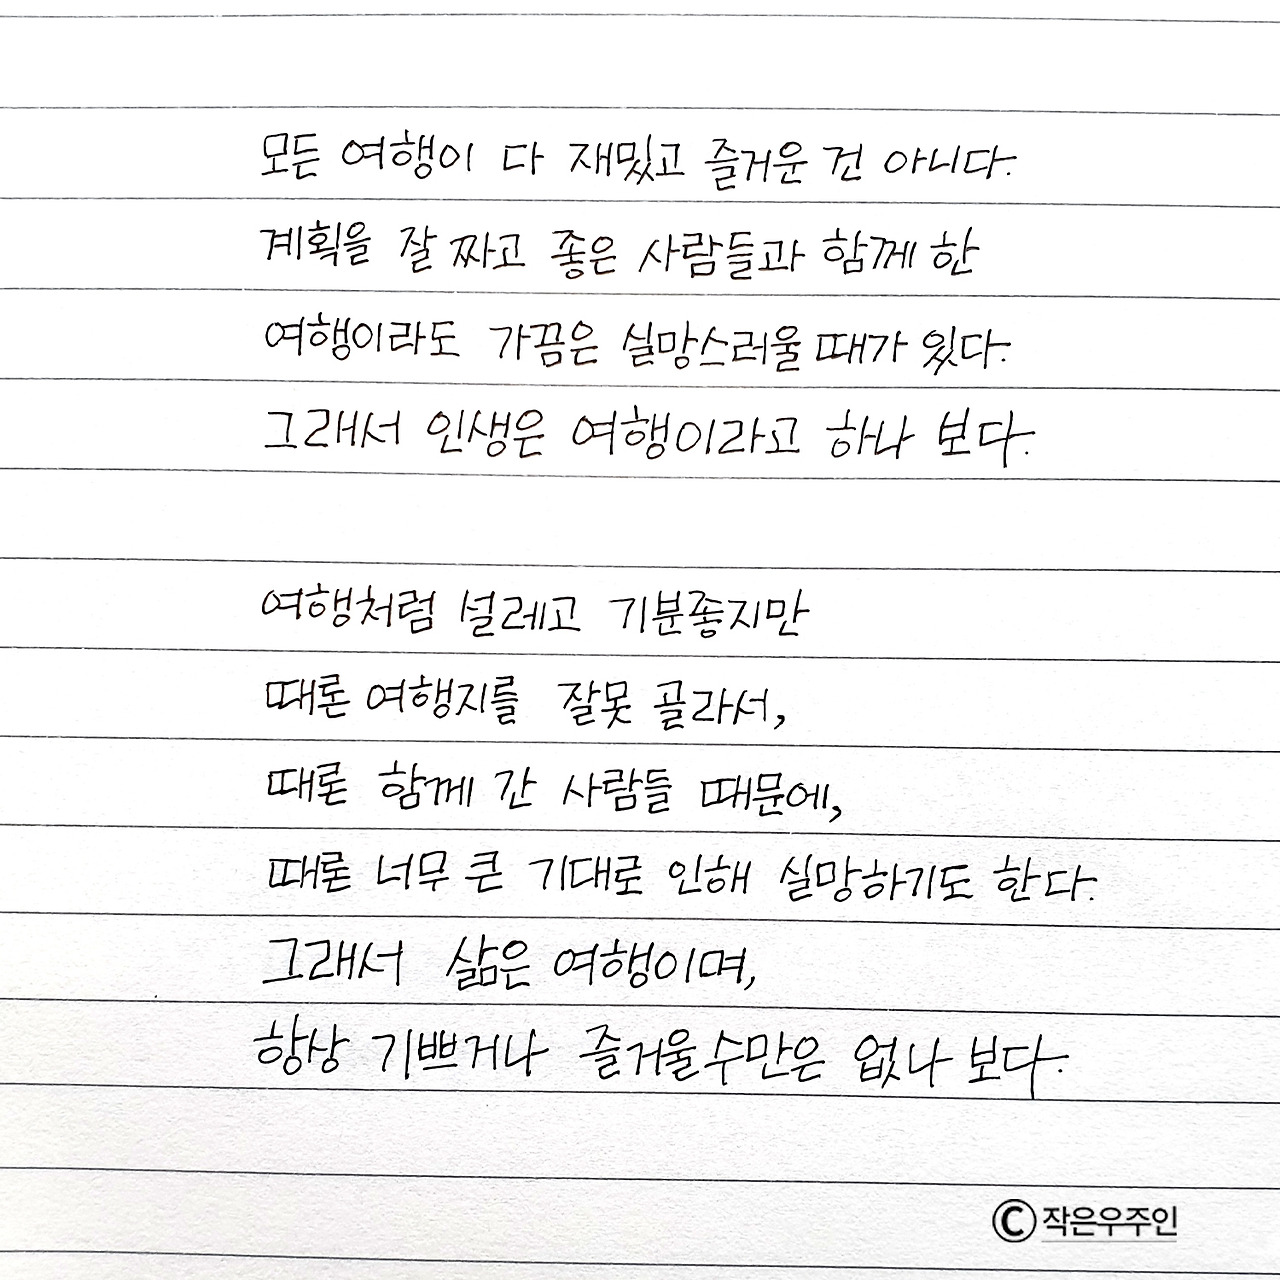 모든 여행이 다 재밌고 즐거운 건 아니다.
계획을 잘 짜고 좋은 사람들과 함께 한
여행이라도 가끔은 실망스러울 때가 있다.
그래서 인생은 여행이라고 하나 보다.
여행처럼 설레고 기분좋지만
때론 여행지를 잘못 골라서,
때론 함께 간 사람들 때문에,
때론 너무 큰 기대로 인해 실망하기도 한다.
그래서 삶은 여행이며,
항상 기쁘거나 즐거울수만은 없나 보다.
ⓒ작은우주인